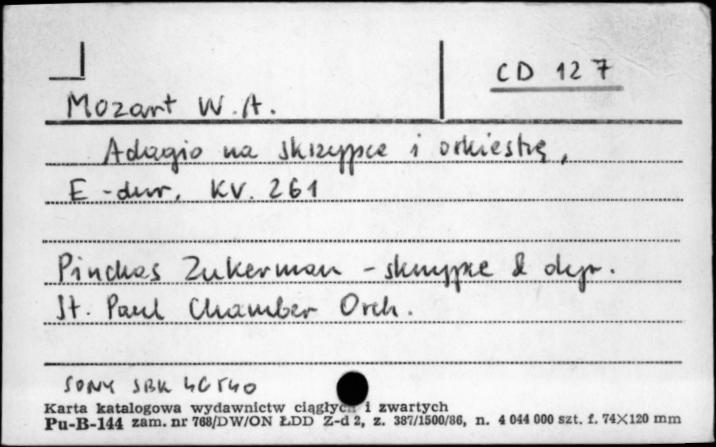 CD 127
Mozart W.A.
Adagio na skrzypce i orkiestrę,
E-dur, KV. 261
Pinchas Zukerman - skrzypce & dyr.
St. Paul Chamber Orch.
SONY SBK 46540
Karta katalogowa wydawnictw ciągłych i zwartych
Pu-B-144 zam. nr 768/DW/ON ŁDD Z-d 2, z. 387/1500/86, n. 4 044 000 szt. f. 74×120 mm